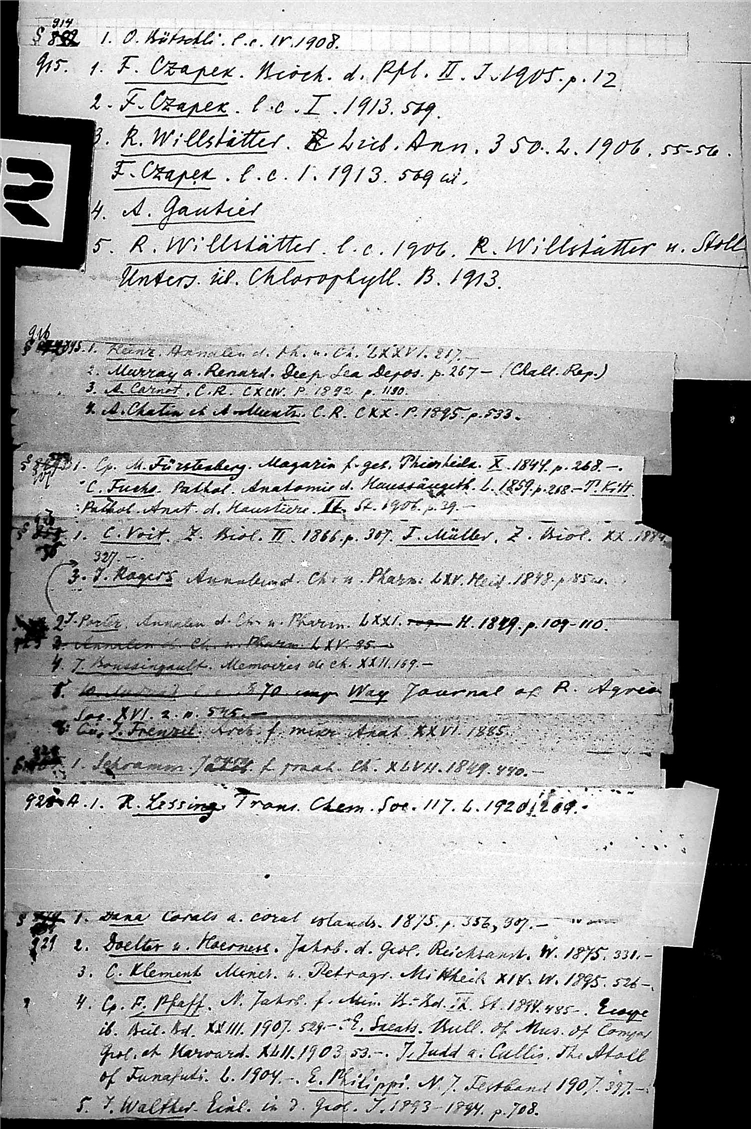 914
§ 1. O. Bütschli. l.c. IV. 1908.
915. 1. F. Czapek. Bioch. d. Pfl. II. J. 1905. p. 12
2. F. Czapek. l.c. I. 1913. 509.
3. R. Willstätter. Lieb. Ann. 350. L. 1906. 55-56.
F. Czapek. l.c. I. 1913. 509
4. A. Gautier
5. R. Willstätter. l.c. 1906. R. Willstätter u. Stoll
Unters. üb. Chlorophyll. B. 1913.
916
1. Heinz. Annalen d. Ph. u. Ch. LXXVI. 217.
2. Murray a. Renard. Deep Sea Depos. p. 267 – (Chall. Rep.)
3. A. Carnot. C.R. CXCIV. P. 1892 p. 1130.
4. A. Chatin et A. Muntz. C.R. CXX. P. 1895 p. 533.
§ 1. Cp. M. Fürstenberg. Magazin f. ges. Thierheilk. X. 1844. p. 268.–.
C. Fuchs. Pathol. Anatomie d. Haussäugeth. L. 1859. p. 268 – T. Kitt.
Pathol. Anat. d. Haustiere. II. St. 1906. p. 29.–
§ 1. C. Voit. Z. Biol. II 1866. p. 307. J. Müller. Z. Biol. XX. 1884.
327.–
3. J. Rogers Annalen d. Ch. u. Pharm. LXV. Heid. 1848. p. 85
2. J. Porter. Annalen d. Ch. u. Pharm. LXXI. H. 1849. p. 109-110.
3. Annalen d. Ch. u. Pharm. LXV. 95.–
4. J. Boussingault. Memoires de ch. XXII. 169.–
5. 1870 Way Journal of R. Agric
Soc. XVI. 2. p. 545.–
J. Frenzel. Arch. f. mikr. Anat. XXVI. 1885.
1. Schramm. f. prakt. Ch. XLVII. 1849. 440.–
928 A. 1. R. Lessing. Trans. Chem. Soc. 117. L. 1920. 269.
§ 1. Dana Corals a. coral islands. 1875. p. 356, 307.–
929 2. Doelter u. Hoerness. Jahrb. d. Geol. Reichsanst. W. 1875. 331.–
3. C. Klement Miner. u. Petrogr. Mittheil. XIV. W. 1895. 526–.
4. Cp. F. Pfaff. N. Jahrb. f. Min. B.-Bd. IX. St. 1894. 485–.
ib. Beil. Bd. XXIII. 1907. 529–. E. Skeats. Bull. of Mus. of Compar
Zool. at Harvard. XLII. 1903. 53.–. J. Judd a. Cullis. The Atoll
of Funafuti. L. 1904.–. E. Philippi. N. J. Festband 1907. 397–.
5. J. Walther. Einl. in d. Geol. J. 1893–1894. p. 708.